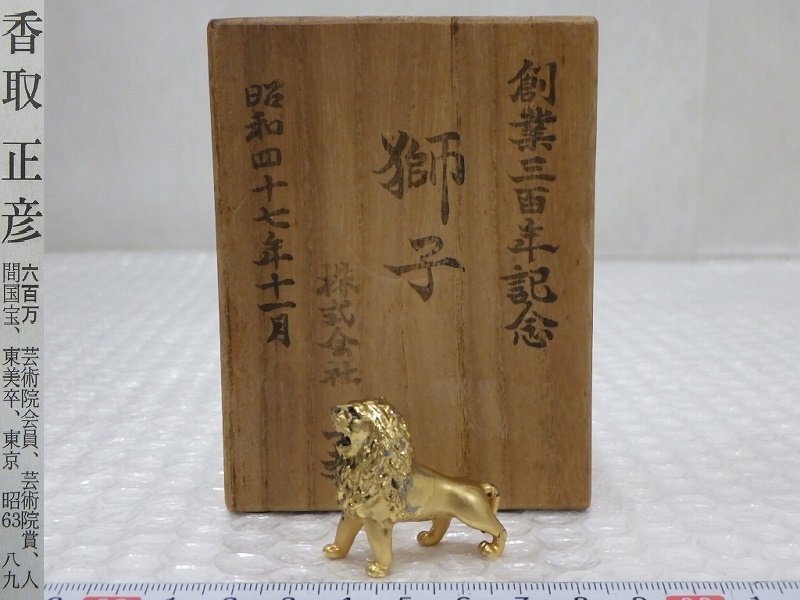 香取正彦
六百万 芸術院会員、芸術院賞、人
間国宝、東美卒、東京 昭63 八九
創業三百年記念
獅子
株式会社
昭和四十七年十一月